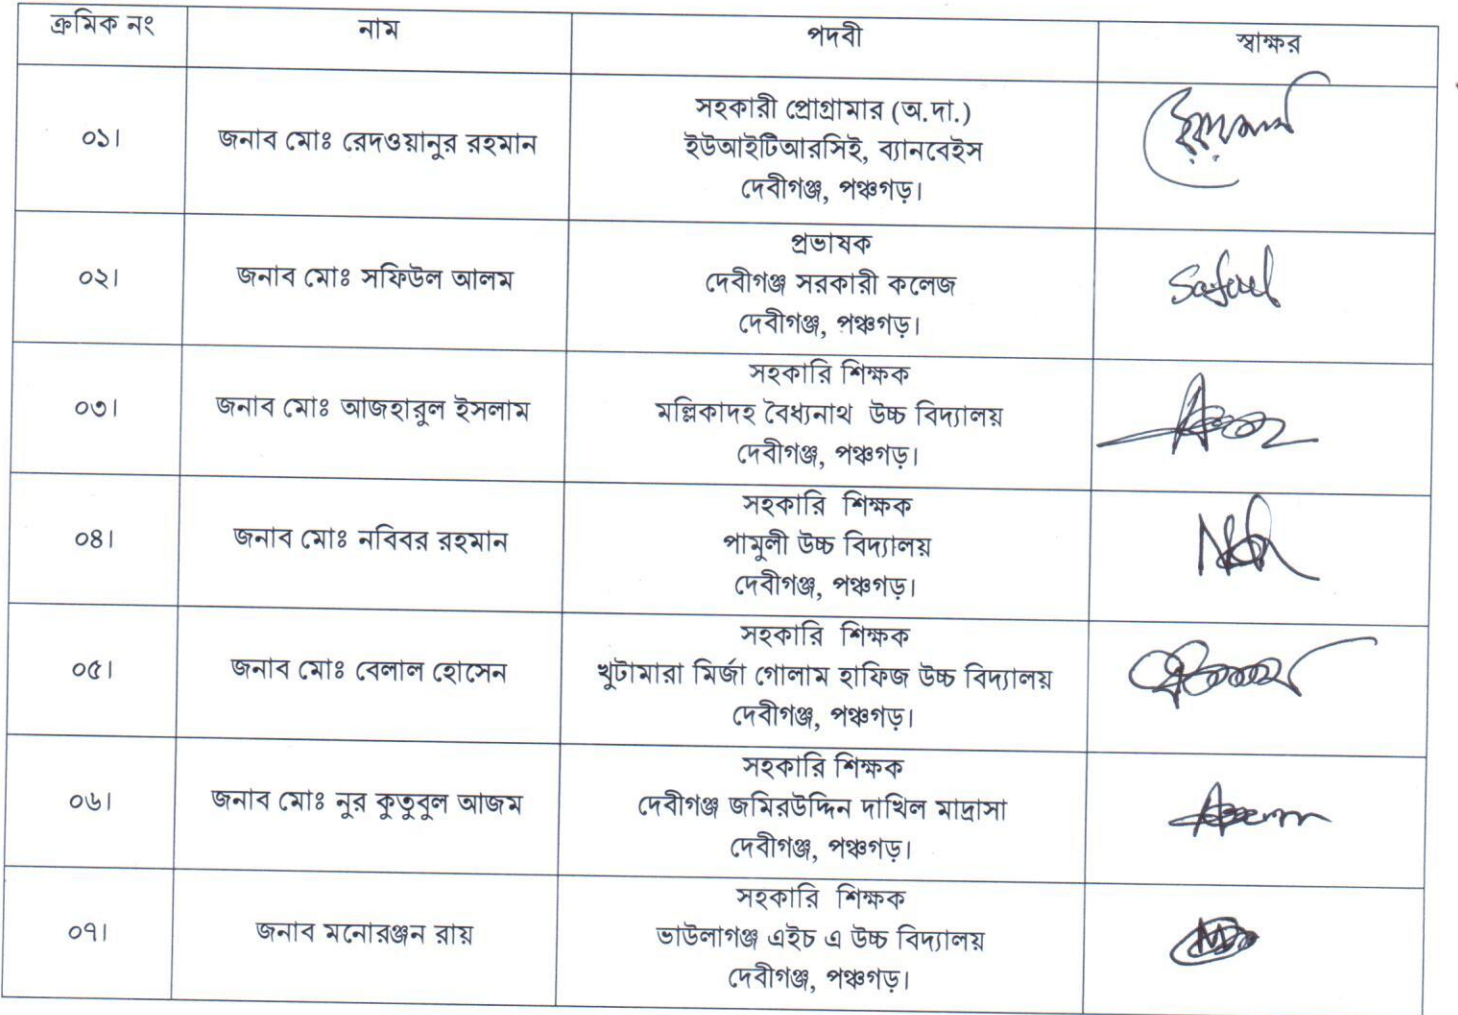 ক্রমিক নং নাম পদবী স্বাক্ষর
০১। জনাব মোঃ রেদওয়ানুর রহমান সহকারী প্রোগ্রামার (অ.দা.)
ইউআইটিআরসিই, ব্যানবেইস
দেবীগঞ্জ, পঞ্চগড়।
০২। জনাব মোঃ সফিউল আলম প্রভাষক
দেবীগঞ্জ সরকারী কলেজ
দেবীগঞ্জ, পঞ্চগড়।
০৩। জনাব মোঃ আজহারুল ইসলাম সহকারি শিক্ষক
মল্লিকাদহ বৈধ্যনাথ উচ্চ বিদ্যালয়
দেবীগঞ্জ, পঞ্চগড়।
০৪। জনাব মোঃ নবিবর রহমান সহকারি শিক্ষক
পামুলী উচ্চ বিদ্যালয়
দেবীগঞ্জ, পঞ্চগড়।
০৫। জনাব মোঃ বেলাল হোসেন সহকারি শিক্ষক
খুটামারা মির্জা গোলাম হাফিজ উচ্চ বিদ্যালয়
দেবীগঞ্জ, পঞ্চগড়।
০৬। জনাব মোঃ নুর কুতুবুল আজম সহকারি শিক্ষক
দেবীগঞ্জ জমিরউদ্দিন দাখিল মাদ্রাসা
দেবীগঞ্জ, পঞ্চগড়।
০৭। জনাব মনোরঞ্জন রায় সহকারি শিক্ষক
ভাউলাগঞ্জ এইচ এ উচ্চ বিদ্যালয়
দেবীগঞ্জ, পঞ্চগড়।